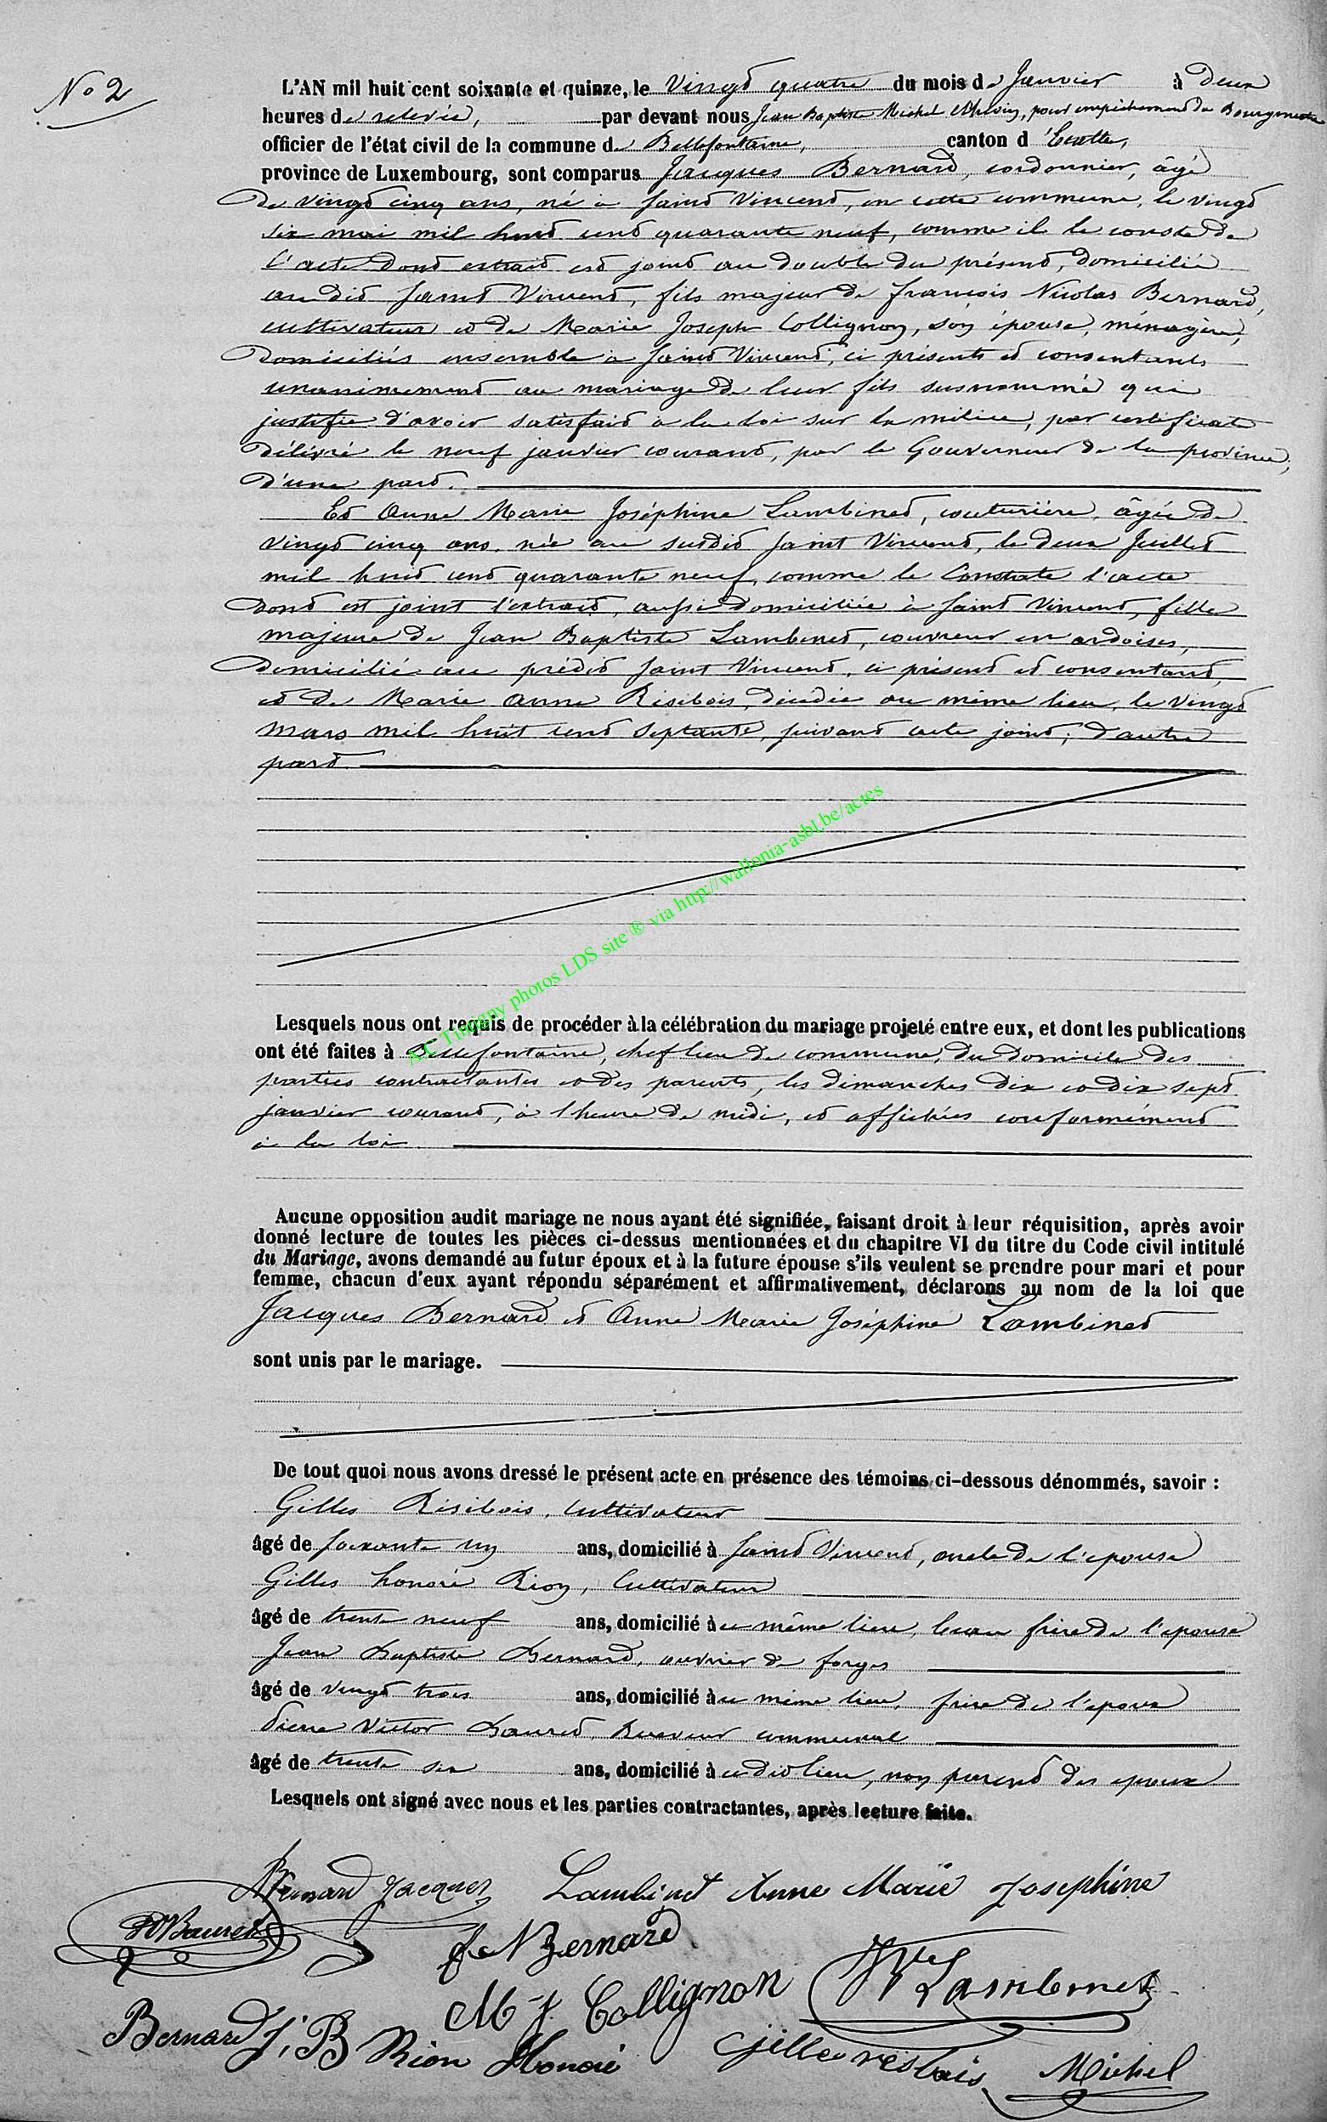 No 2
L'AN mil huit cent soixante et quinze, le vingt quatre du mois de Janvier à deux
heures de relevée, par devant nous Jean Baptiste Michel Echevin, pour empêchement du Bourgmestre
officier de l'état civil de la commune de Bellefontaine, canton d'Etalle,
province de Luxembourg, sont comparus Jacques Bernard, cordonnier, âgé
de vingt cinq ans, né à Saint Vincent, en cette commune, le vingt
six mai mil huit cent quarante neuf, comme il le conste de
l'acte dont extrait est joint au double du présent, domicilié
au dit Saint Vincent, fils majeur de François Nicolas Bernard,
cultivateur et de Marie Joseph Collignon, son épouse, ménagère,
domiciliés ensemble à Saint Vincent, ci présents et consentants
unanimement au mariage de leur fils susnommé qui
justifie d'avoir satisfait à la loi sur la milice, par certificat
délivré le neuf janvier courant, par le Gouverneur de la province,
d'une part.
Et Anne Marie Joséphine Lambinet, couturière, âgée de
vingt cinq ans, née au susdit Saint Vincent, le deux Juillet
mil huit cent quarante neuf, comme le Constate l'acte
dont est joint l'extrait, aussi domiciliée à Saint Vincent, fille
majeure de Jean Baptiste Lambinet, couvreur en ardoises,
domicilié au prédit Saint Vincent, ci présent et consentant,
et de Marie Anne Risibois, décédée au même lieu, le vingt
mars mil huit cent septante, suivant acte joint; d'autre
part.
AC Tintigny photos LDS site ® via http://wallonia-asbl.be/actes
Lesquels nous ont requis de procéder à la célébration du mariage projeté entre eux, et dont les publications
ont été faites à Bellefontaine, chef lieu de commune, du domicile des
parties contractantes et des parents, les dimanches dix et dix sept
janvier courant, à l'heure de midi, et affichées conformément
à la loi.
Aucune opposition audit mariage ne nous ayant été signifiée, faisant droit à leur réquisition, après avoir
donné lecture de toutes les pièces ci-dessus mentionnées et du chapitre VI du titre du Code civil intitulé
du Mariage, avons demandé au futur époux et à la future épouse s'ils veulent se prendre pour mari et pour
femme, chacun d'eux ayant répondu séparément et affirmativement, déclarons au nom de la loi que
Jacques Bernard et Anne Marie Joséphine Lambinet
sont unis par le mariage.
De tout quoi nous avons dressé le présent acte en présence des témoins ci-dessous dénommés, savoir :
Gilles Risibois, Cultivateur
âgé de soixante un ans, domicilié à Saint Vincent, oncle de l'épouse
Gilles honoré Rion, Cultivateur
âgé de trente neuf ans, domicilié à ce même lieu, beau frère de l'épouse
Jean Baptiste Bernard, ouvrier de forges
âgé de vingt trois ans, domicilié à ce même lieu, frère de l'époux
Pierre Victor Bauret, Receveur communal
âgé de trente six ans, domicilié à ce dit lieu, non parent des époux
Lesquels ont signé avec nous et les parties contractantes, après lecture faite.
Bernard Jacques Lambinet Anne Marie Josephine
Bauret
f N Bernard
M j Collignon Lambinet
Bernard J, B Rion Honoré Gille Michel